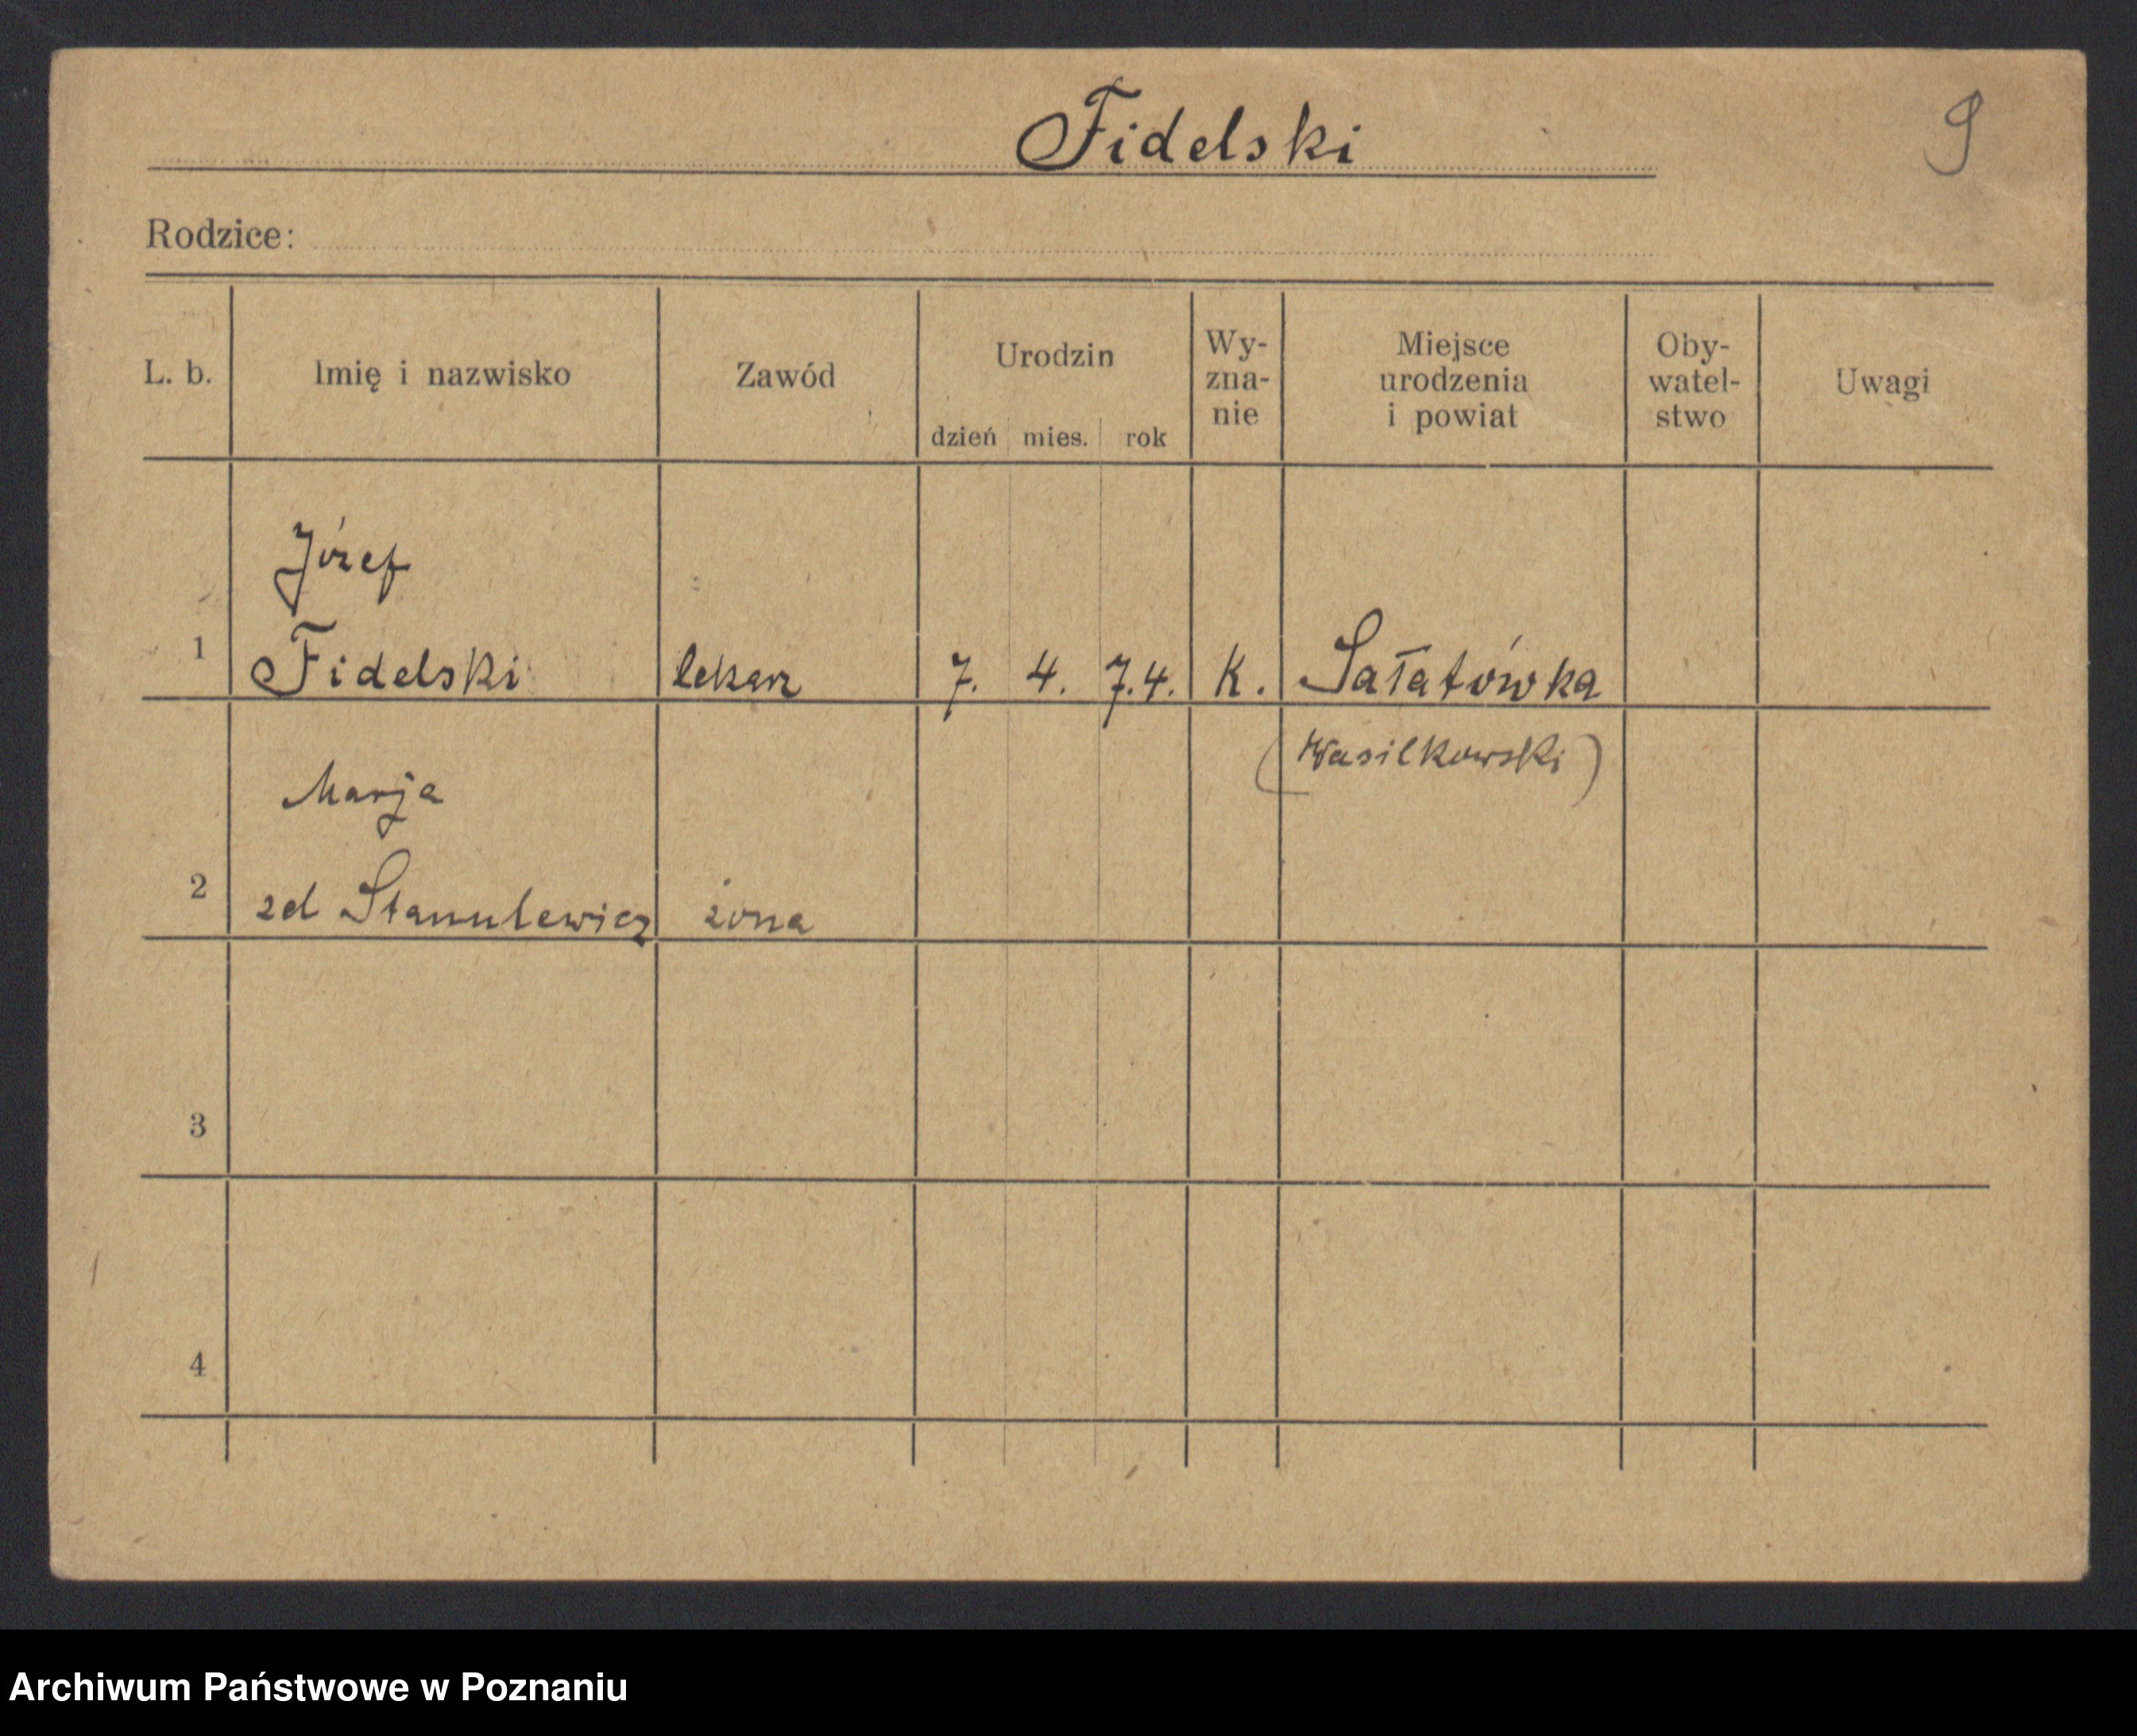 Fidelski
9
Rodzice:
L. b.
Imię i nazwisko
Zawód
Urodzin
dzień mies. rok
Wy-
zna-
nie
Miejsce
urodzenia
i powiat
Oby-
watel-
stwo
Uwagi
Józef
1 Fidelski lekarz 7. 4. 74. K. Sałatówka
(Wasilkowski)
Marja
2 zd Stanulewicz żona
3
4
Archiwum Państwowe w Poznaniu